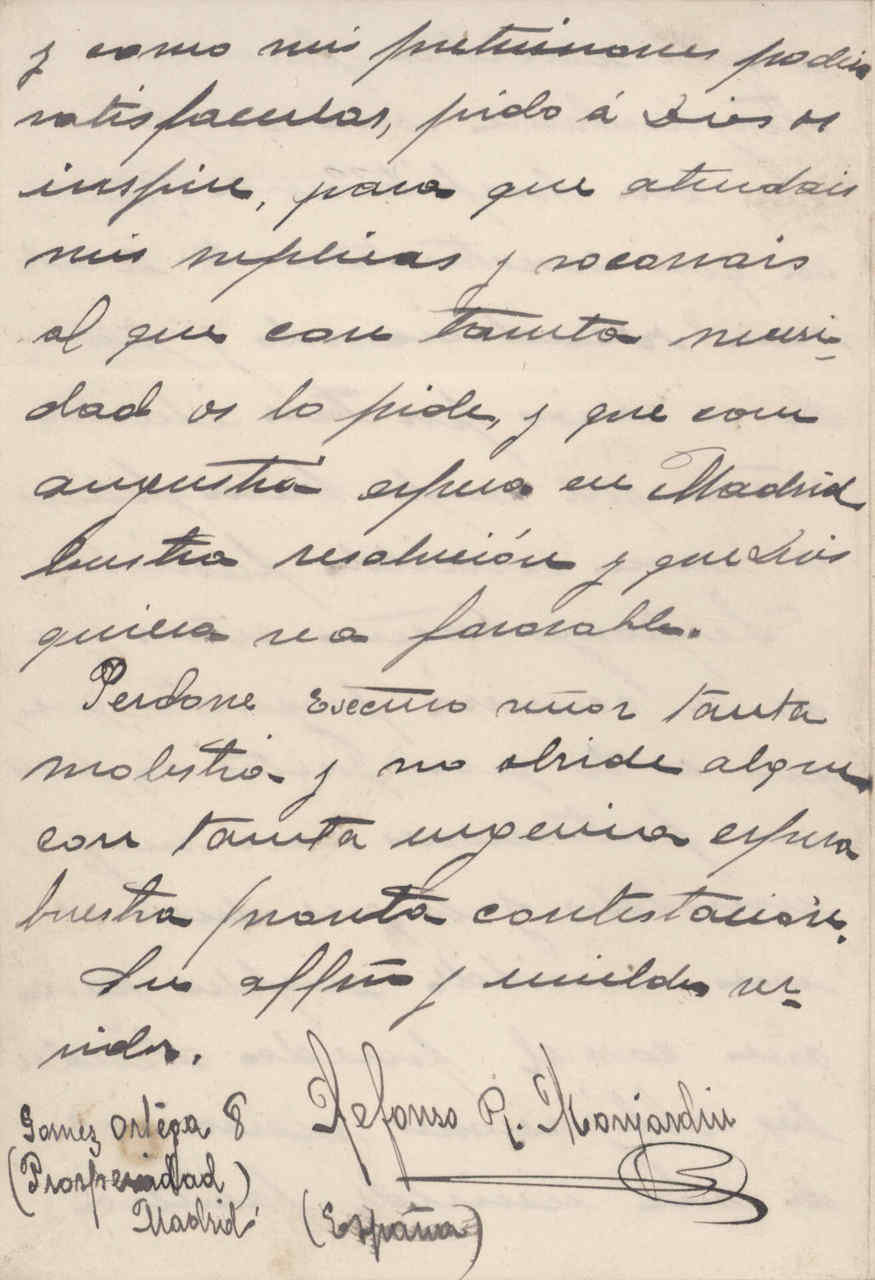 y como mis pretensiones podeis
satisfacerlas, pido á Dios os
inspire, para que atendais
mis suplicas y socorrais
al que con tanta necesi-
dad os lo pide, y que con
angustia espera en Madrid
buestra resolución y que Dios
quiera sea favorable.
Perdone Execmo señor tanta
molestia y no olvide alque
con tanta urgencia espera
buestra pronta contestación.
Su affmo y umilde ser-
vidor.
Ildefonso R. Monjardin
Gomez Ortega 8
(Prosperidad)
Madrid
(España)